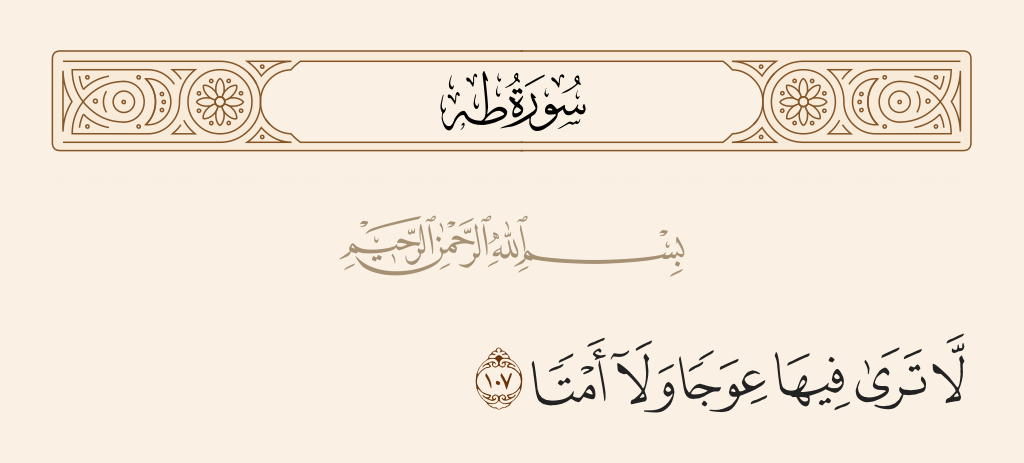 سُورَةُ طه
بِسْمِ ٱللَّهِ ٱلرَّحْمَٰنِ ٱلرَّحِيمِ
لَّا تَرَىٰ فِيهَا عِوَجًا وَلَآ أَمْتًا ١٠٧